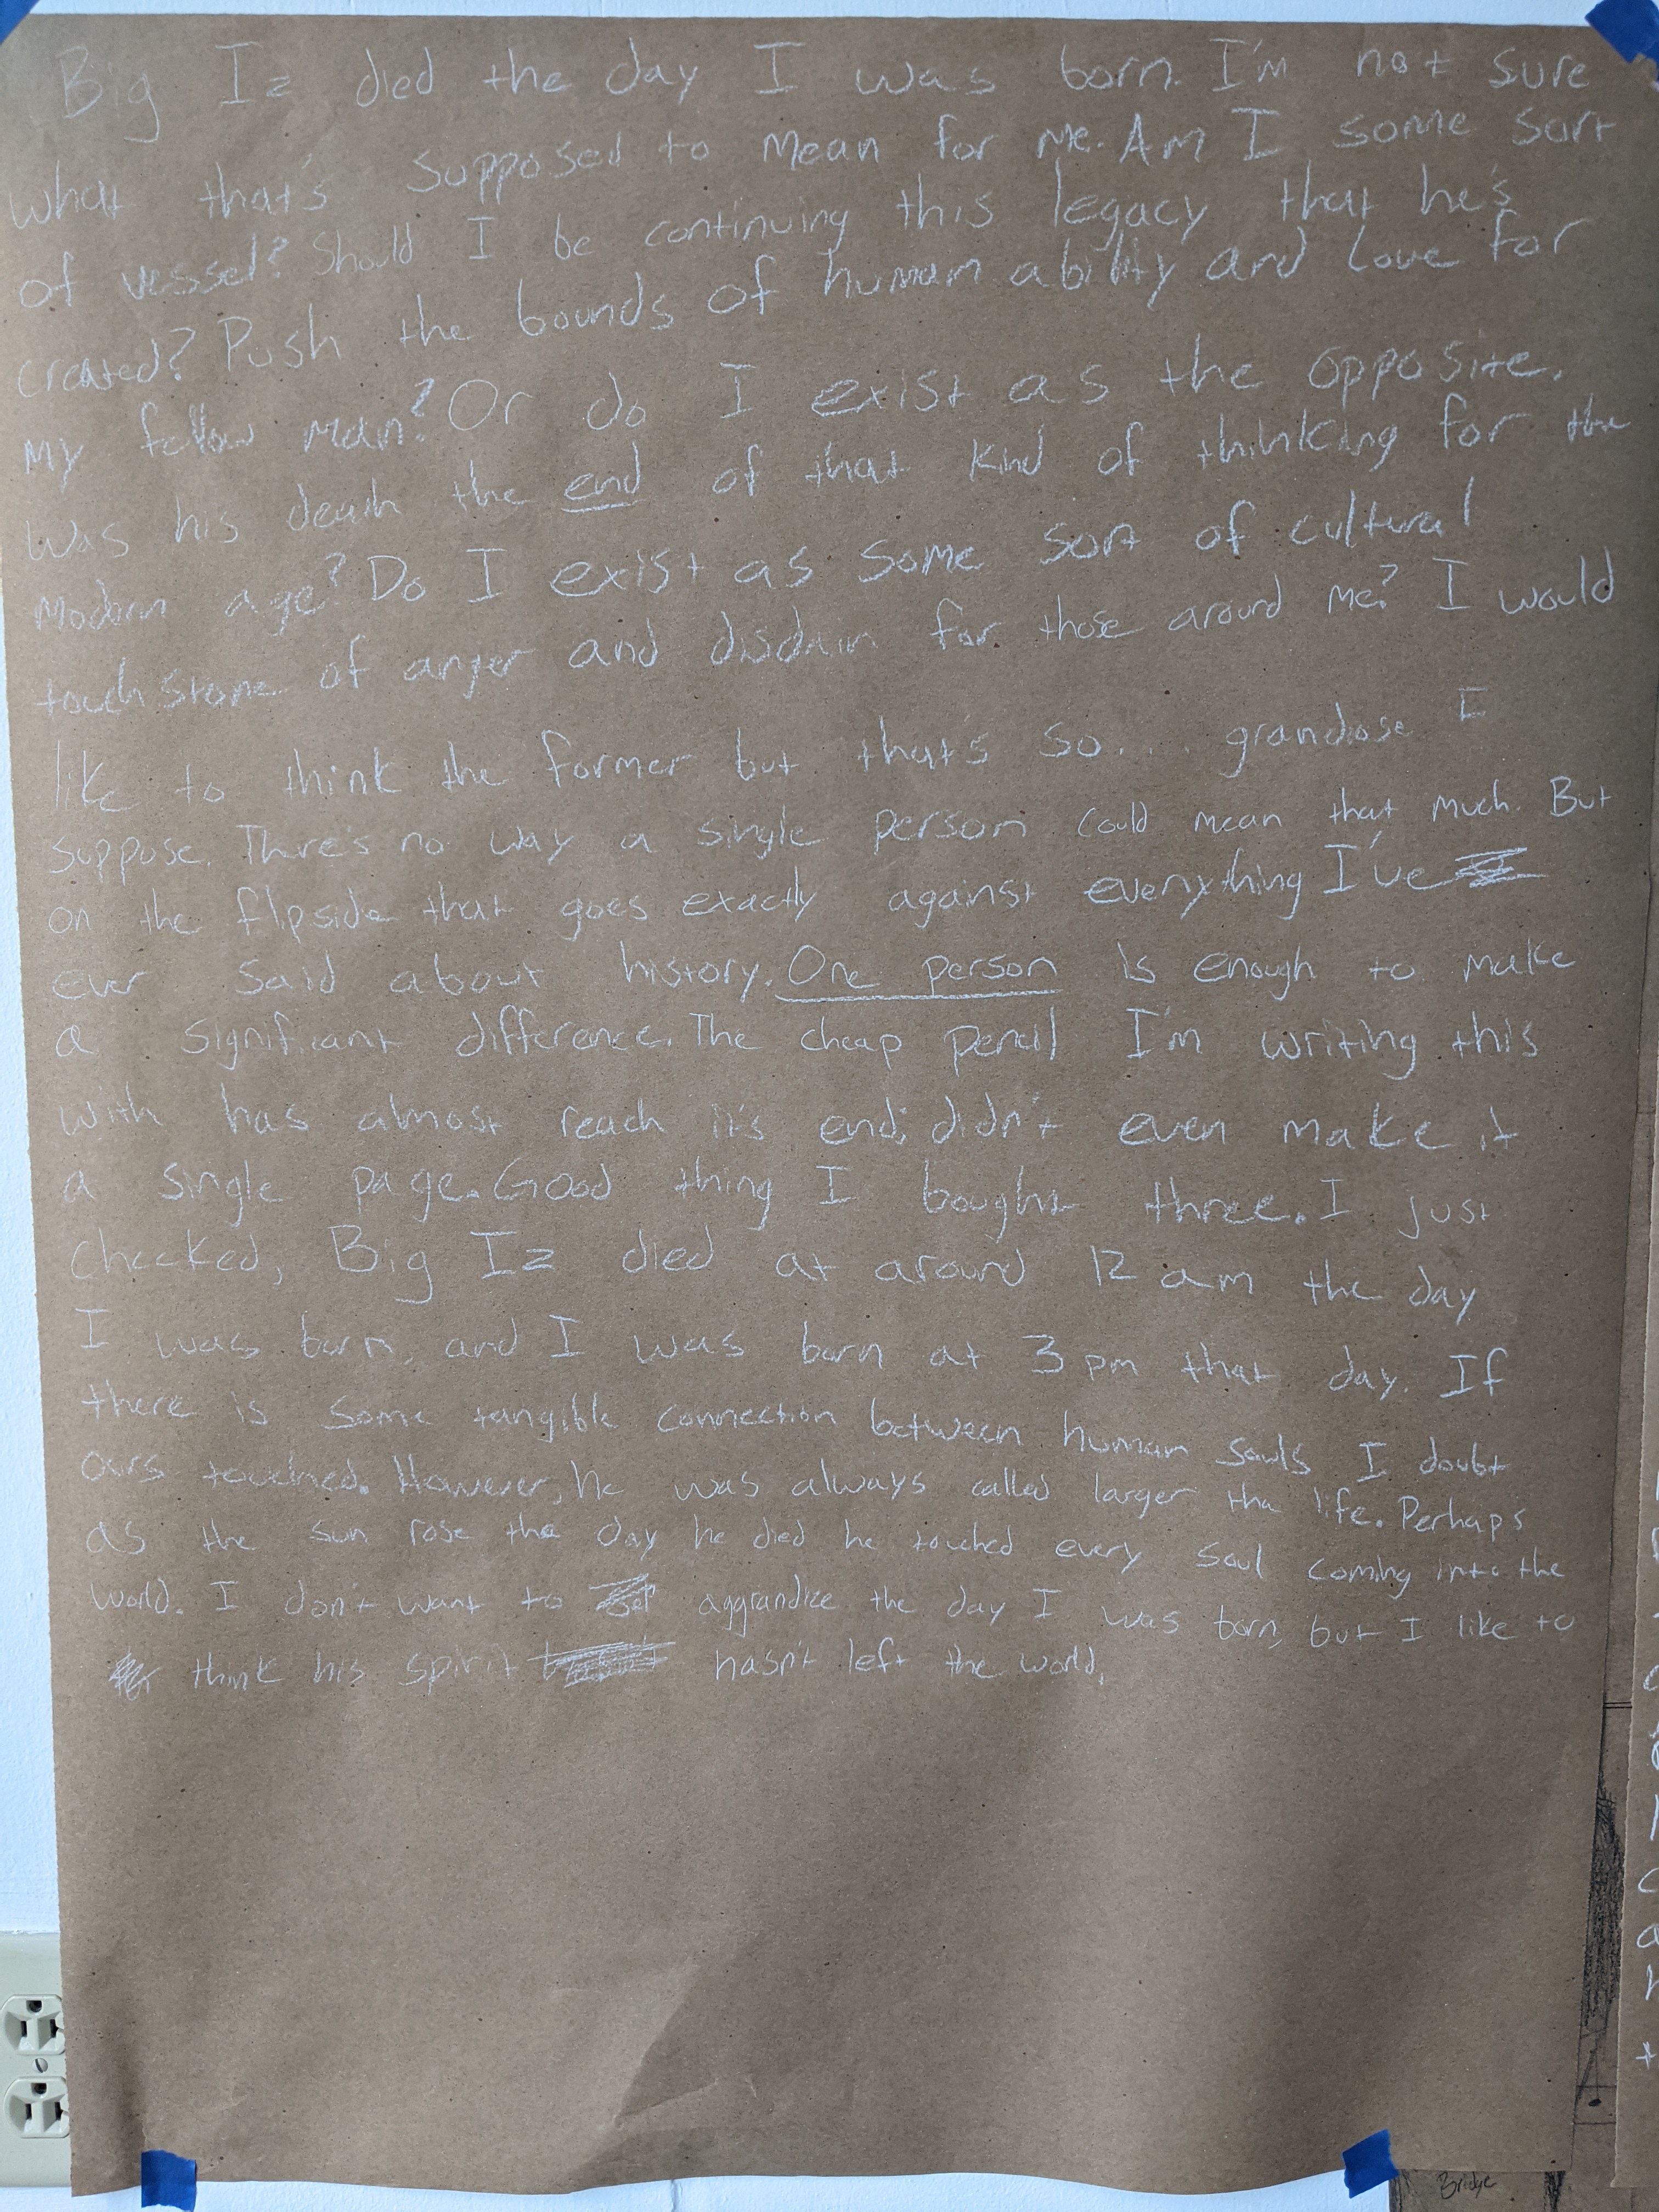 Big Iz died the day I was born. I'm not sure
what that's supposed to mean for me. Am I some sort
of vessel? Should I be continuing this legacy that he's
created? Push the bounds of human ability and love for
my fellow man? Or do I exist as the opposite.
Was his death the end of that kind of thinking for the
modern age? Do I exist as some sort of cultural
touch stone of anger and disdain for those around me? I would
like to think the former but that's so... grandiose I
suppose. There's no way a single person could mean that much. But
on the flipside that goes exactly against everything I've
ever said about history. One person is enough to make
a significant difference. The cheap pencil I'm writing this
with has almost reach it's end; didn't even make it
a single page. Good thing I bought three. I just
checked, Big Iz died at around 12 am the day
I was born, and I was born at 3 pm that day. If
there is some tangible connection between human souls I doubt
ours touched. However, he was always called larger tha life. Perhaps
as the sun rose the day he died he touched every soul coming into the
world. I don't want to aggrandize the day I was born, but I like to
think his spirit hasn't left the world.
Bridge